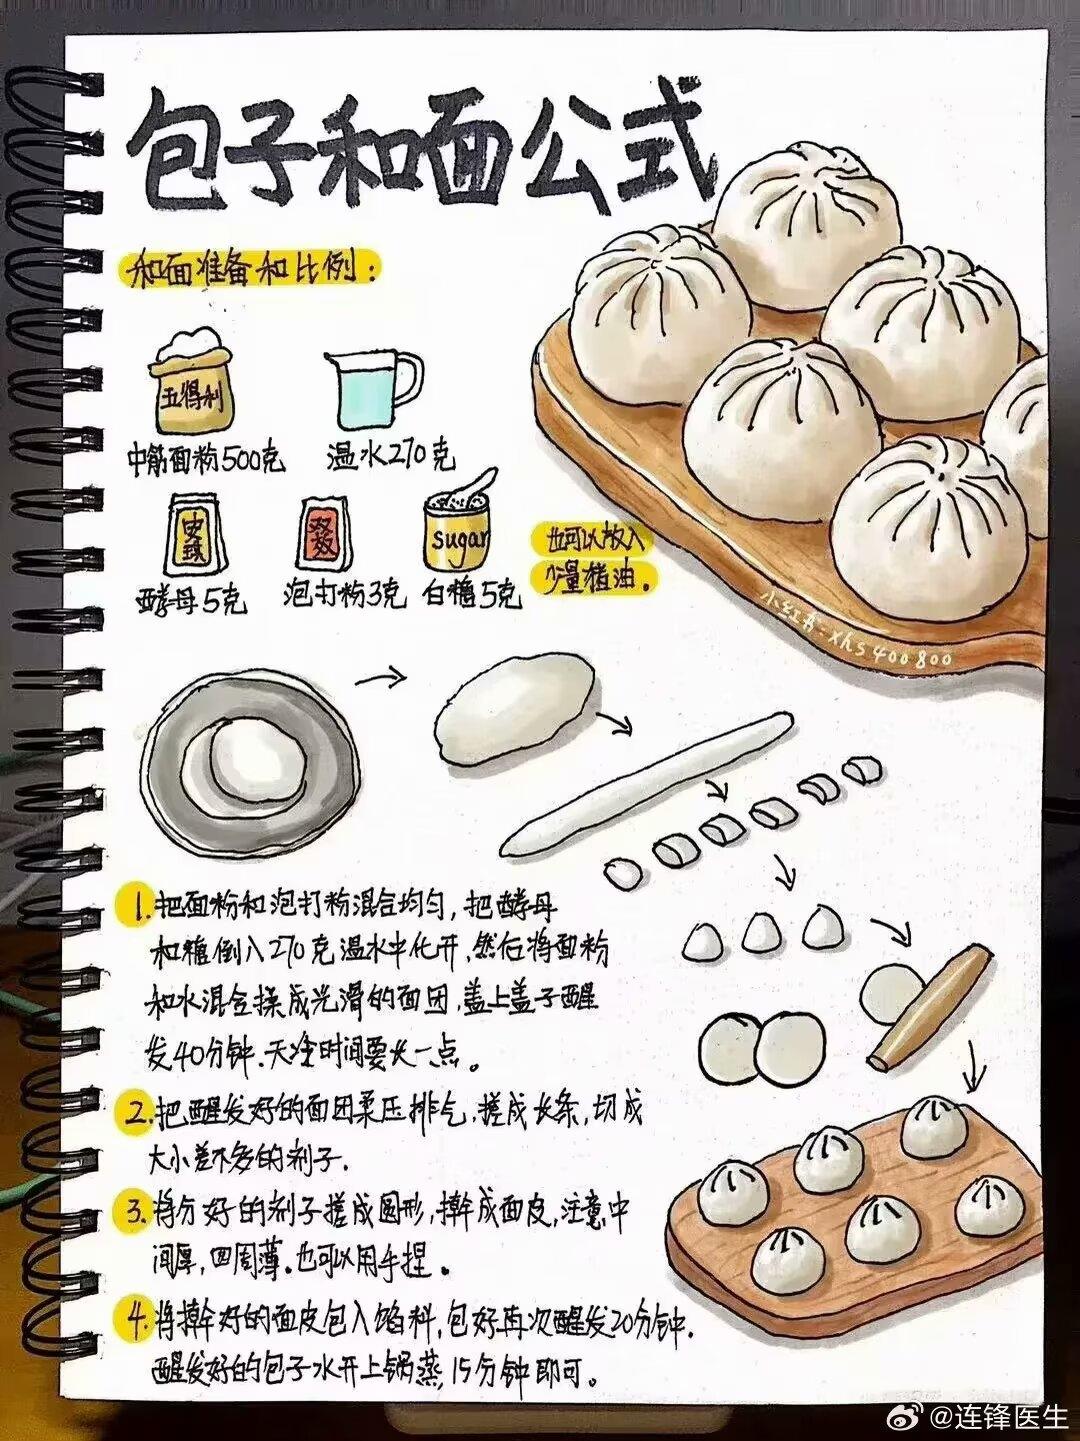 包子和面公式
和面准备和比例：
五得利
中筋面粉500克
温水270克
安琪
酵母5克
双效
泡打粉3克
sugar
白糖5克
也可以放入
少量猪油.
小红书:xhs400800
1.把面粉和泡打粉混合均匀,把酵母
和糖倒入270克温水中化开,然后将面粉
和水混合揉成光滑的面团,盖上盖子醒
发40分钟.天冷时间要长一点。
2.把醒发好的面团柔压排气,搓成长条,切成
大小差不多的剂子.
3.将分好的剂子搓成圆形,擀成面皮,注意中
间厚,四周薄.也可以用手捏。
4.将擀好的面皮包入馅料,包好再次醒发20分钟.
醒发好的包子水开上锅蒸,15分钟即可。
@连锋医生